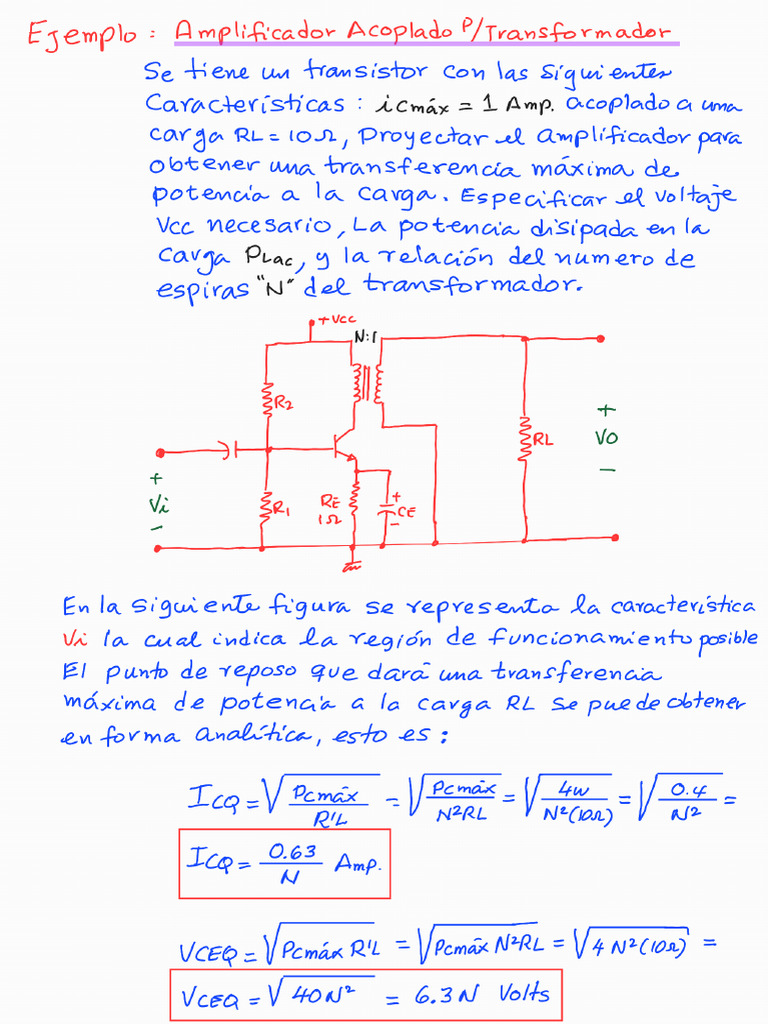 Ejemplo: Amplificador Acoplado P/Transformador
Se tiene un transistor con las siguientes
Características: icmáx = 1 Amp. acoplado a una
carga RL = 10Ω, Proyectar el amplificador para
obtener una transferencia máxima de
potencia a la carga. Especificar el voltaje
Vcc necesario, La potencia disipada en la
carga PLac, y la relación del numero de
espiras "N" del transformador.
+Vcc
N:1
R2
RL
+
Vo
-
+
Vi
-
R1
RE
1Ω
+
CE
-
En la siguiente figura se representa la característica
Vi la cual indica la región de funcionamiento posible
El punto de reposo que dará una transferencia
máxima de potencia a la carga RL se puede obtener
en forma analítica, esto es:
ICQ = √(Pcmáx / R'L) = √(Pcmáx / N²RL) = √(4w / N²(10Ω)) = √(0.4 / N²) =
ICQ = 0.63 / N Amp.
VCEQ = √(Pcmáx R'L) = √(Pcmáx N²RL) = √(4 N²(10Ω)) =
VCEQ = √(40N²) = 6.3 N Volts